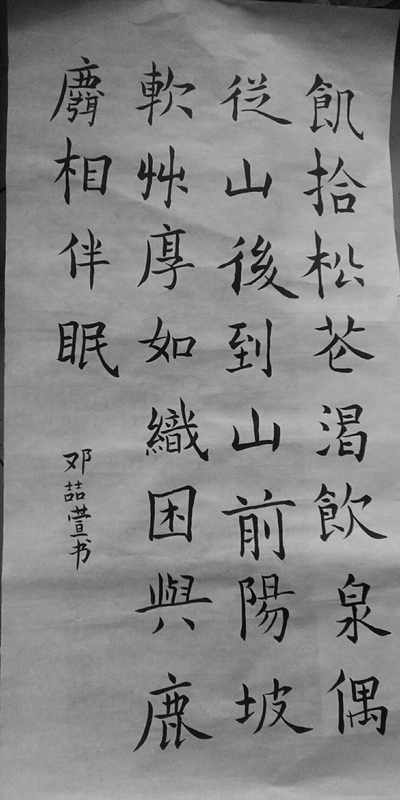 飢拾松花渴飲泉偶
從山後到山前陽坡
軟艸厚如織困與鹿
麛相伴眠
邓喆萱书